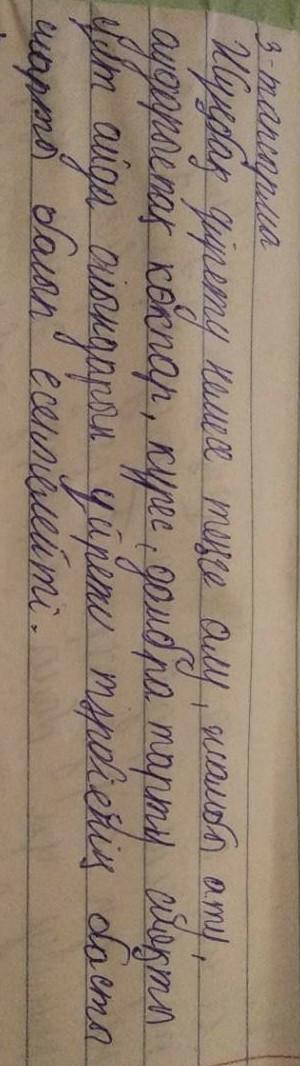 3-тапсырма
Жүзбақ үйрету немесе теңге алу, жамбы ату,
аударыспақ көкпар, күрес, домбра тарту сияқты
ұлт ойын ойындарын үйрету тәрбиенің басты
шарты болып есептелейті.